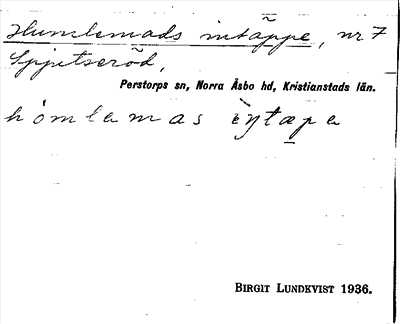 Humlemads intäppe, nr 7
Spjutseröd,
Perstorps sn, Norra Åsbo hd, Kristianstads län.
hòmlamas ìŋtæpa
BIRGIT LUNDKVIST 1936.